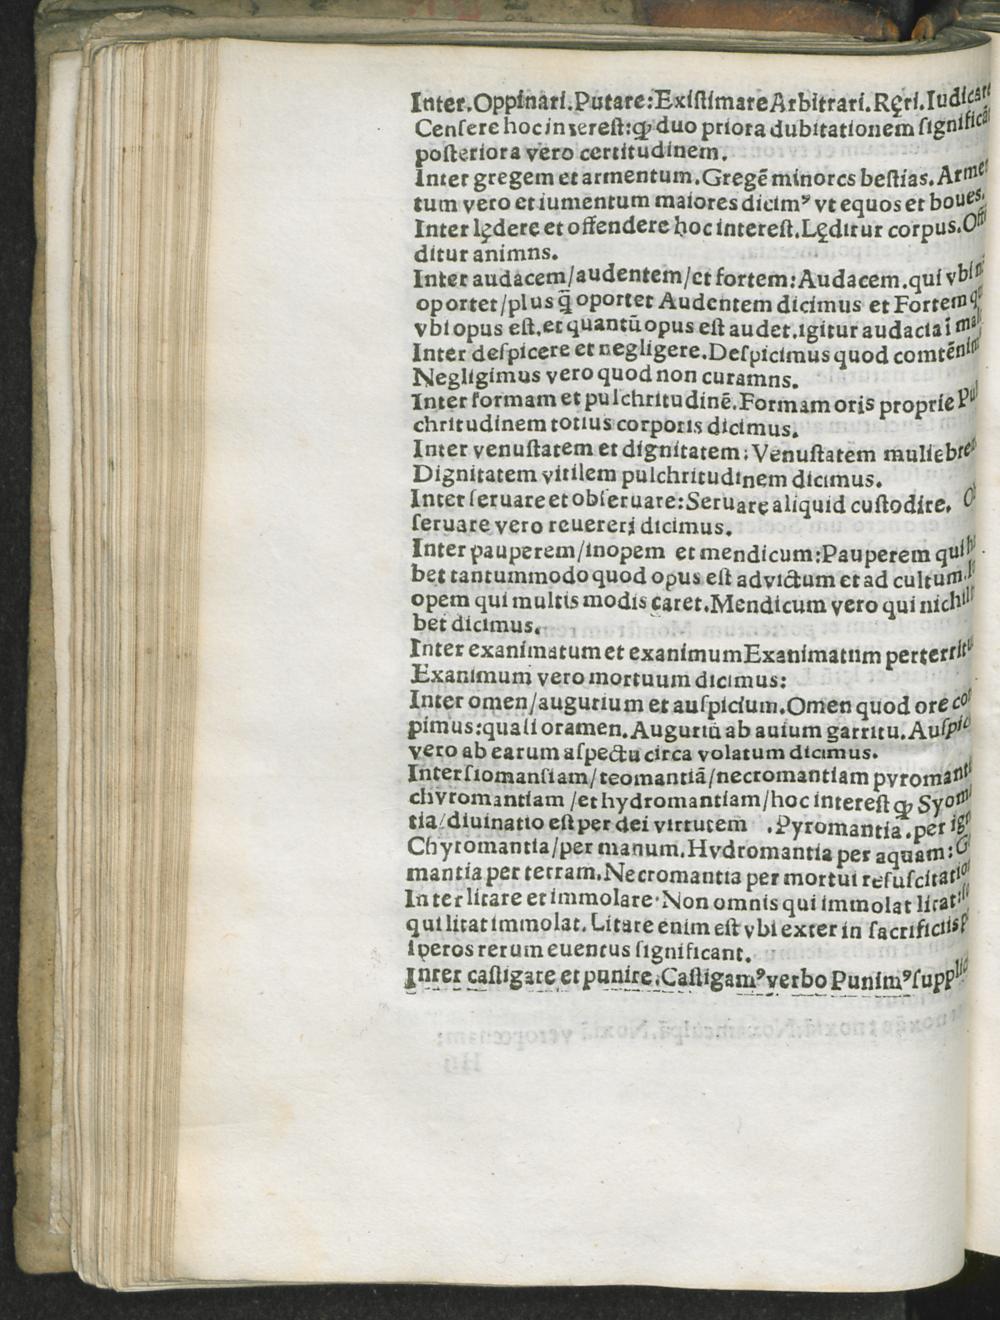 Inter.Oppinari.Putare:Existimare Arbitrari.Ręri.Iudicare
Censere hoc interest:ꝙ duo priora dubitationem significāt
posteriora vero certitudinem.
Inter gregem et armentum.Gregē minores bestias.Armen
tum vero et iumentum maiores dicimꝰ vt equos et boues.
Inter lędere et offendere hoc interest.Lęditur corpus.Offē
ditur animns.
Inter audacem/audentem/et fortem:Audacem.qui vbi nō
oportet/plus q̄ oportet Audentem dicimus et Fortem qui
vbi opus est.et quantū opus est audet.igitur audacia ī malū
Inter despicere et negligere.Despicimus quod comtēnimus
Negligimus vero quod non curamns.
Inter formam et pulchritudinē.Formam oris proprie Pul
chritudinem totius corporis dicimus.
Inter venustatem et dignitatem:Venustatem muliebrem
Dignitatem virilem pulchritudinem dicimus.
Inter seruare et obseruare:Seruare aliquid custodire. Ob
seruare vero reuereri dicimus.
Inter pauperem/inopem et mendicum:Pauperem qui ha
bet tantummodo quod opus est ad victum et ad cultum.In
opem qui multis modis caret.Mendicum vero qui nichil ha
bet dicimus.
Inter exanimatum et exanimum Exanimatum perterritum
Exanimum vero mortuum dicimus:
Inter omen/augurium et auspicium.Omen quod ore co
pimus:quasi oramen.Auguriū ab auium garritu.Auspic
vero ab earum aspectu circa volatum dicimus.
Inter siomansiam/teomantiā/necromantiam pyromanti
chyromantiam /et hydromantiam/hoc interest ꝙ Syoma
tia/diuinatio est per dei virtutem .Pyromantia.per ignē
Chyromantia/per manum.Hydromantia per aquam:Ge
mantia per terram.Necromantia per mortui resuscitation
Inter litare et immolare·Non omnis qui immolat litat:se
qui litat immolat.Litare enim est vbi exter in sacrificiis p
speros rerum euentus significant.
Inter castigare et punire.Castigamꝰ verbo Punimꝰ supplic